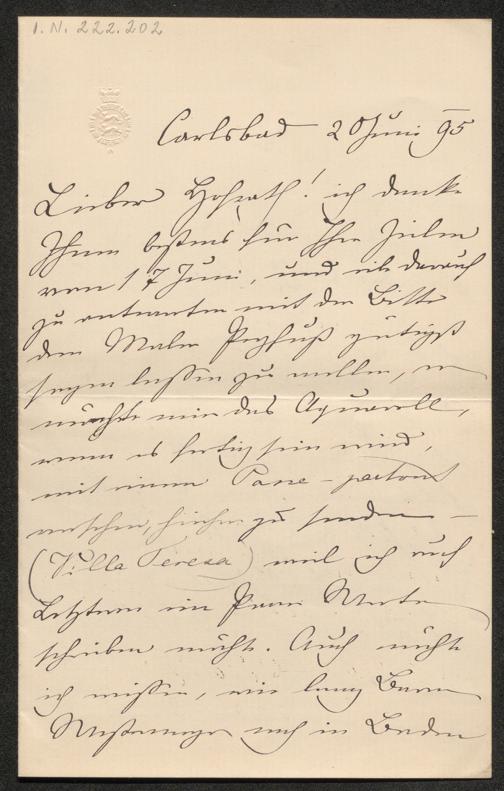 I. N. 222.202
Carlsbad 20 Juni 95
Lieber Hofrath! ich danke
Ihnen bestens für Ihre Zeilen
vom 17 Juni, und eile darauf
zu antworten mit der Bitte
dem Maler gütigst
sagen lassen zu wollen, er
möchte mir das Aquarell,
wenn es fertig sein wird,
mit einem Passe-partout
versehen, hieher zu senden –
(Villa Teresa) weil ich auf
Letzterem ein Paar Worte
schreiben möchte. Auch möchte
ich wissen, wie lang Baron
noch in Baden